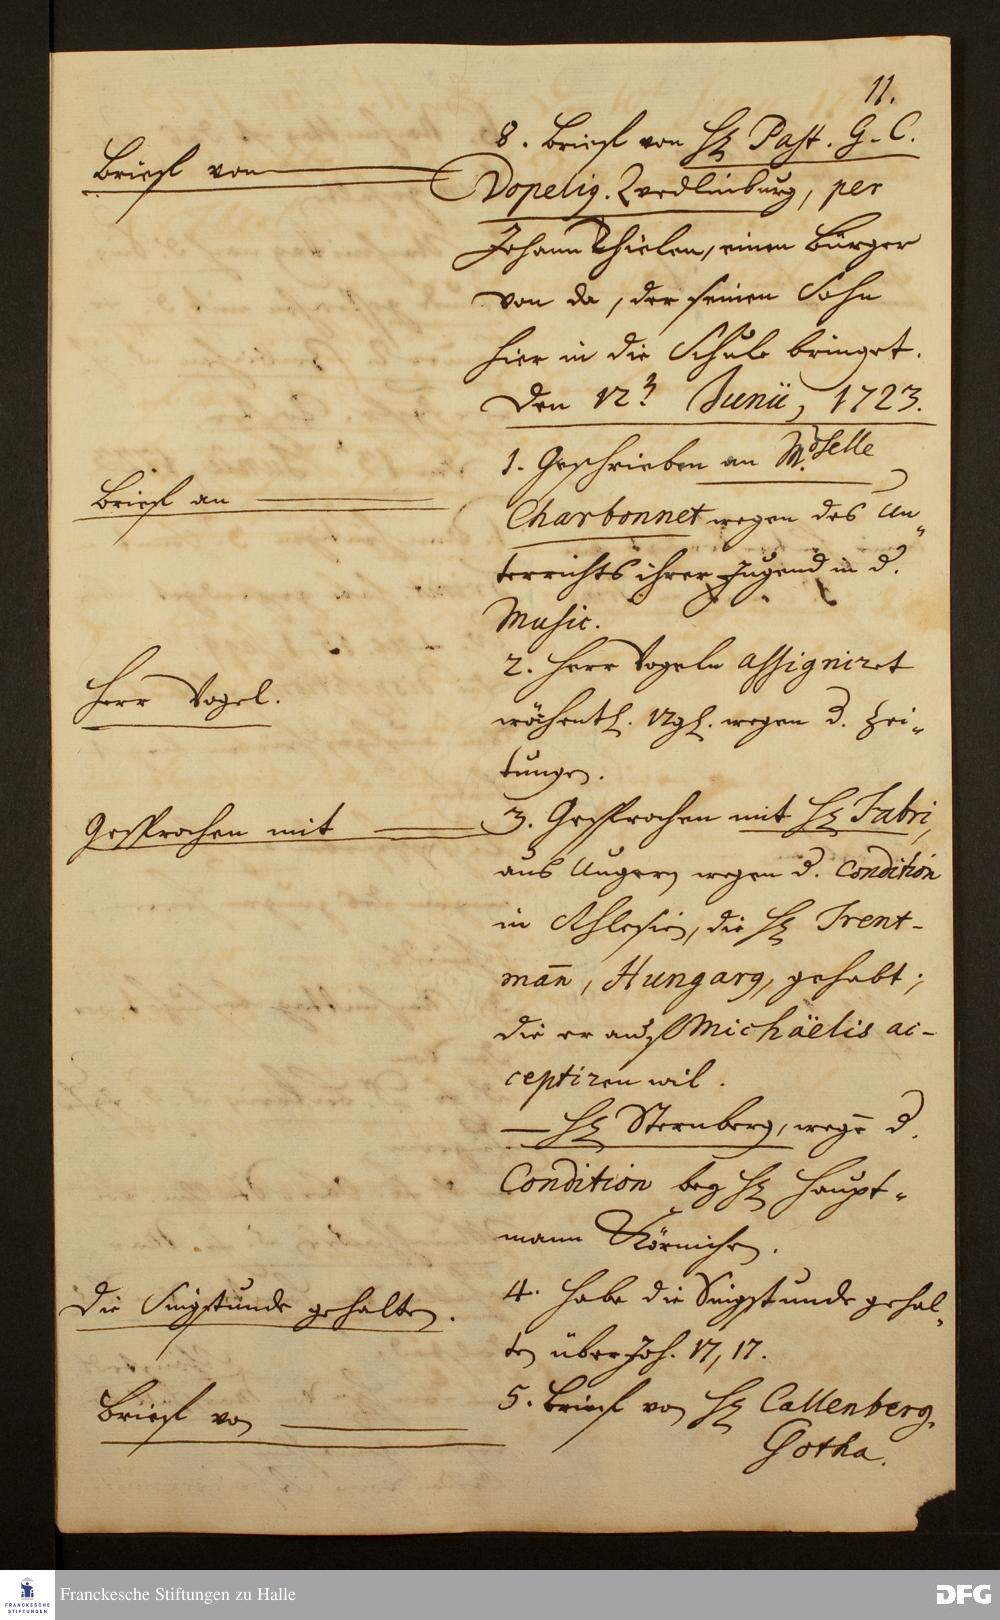 11.
Brieff von
8. Brieff von Hl Past. G. C.
Dopelig. Qvedlinburg, per
Johann Thielen, einen Bürger
von da, der seinen Sohn
hier in die Schule bringet.
Den 12t Junii, 1723.
Brieff an
1. Geschrieben an Mdselle
Charbonnet wegen des Un„
terrichts ihrer Jugend in d.
Music.
Herr Vogel.
2. Herr Vogeln assigniret
wöchentl. 12 gl. wegen d. Zei„
tungen.
Gesprochen mit
3. Gesprochen mit Hl Fabri,
aus Ungern wegen d. Condition
in Schlesien, die Hl Trent-
mañ, Hungary, gehabt;
die er auff Michäelis ac-
ceptiren wil.
— Hl Sternberg, wegē d.
Condition bey Hl Haupt„
mann Körnichen.
Die Singstunde gehalten.
4. Habe die Singstunde gehal„
ten über Joh. 17, 17.
Brieff von
5. Brieff von Hl Callenberg,
Gotha.
Franckesche Stiftungen zu Halle
FRANCKESCHE
STIFTUNGEN
DFG